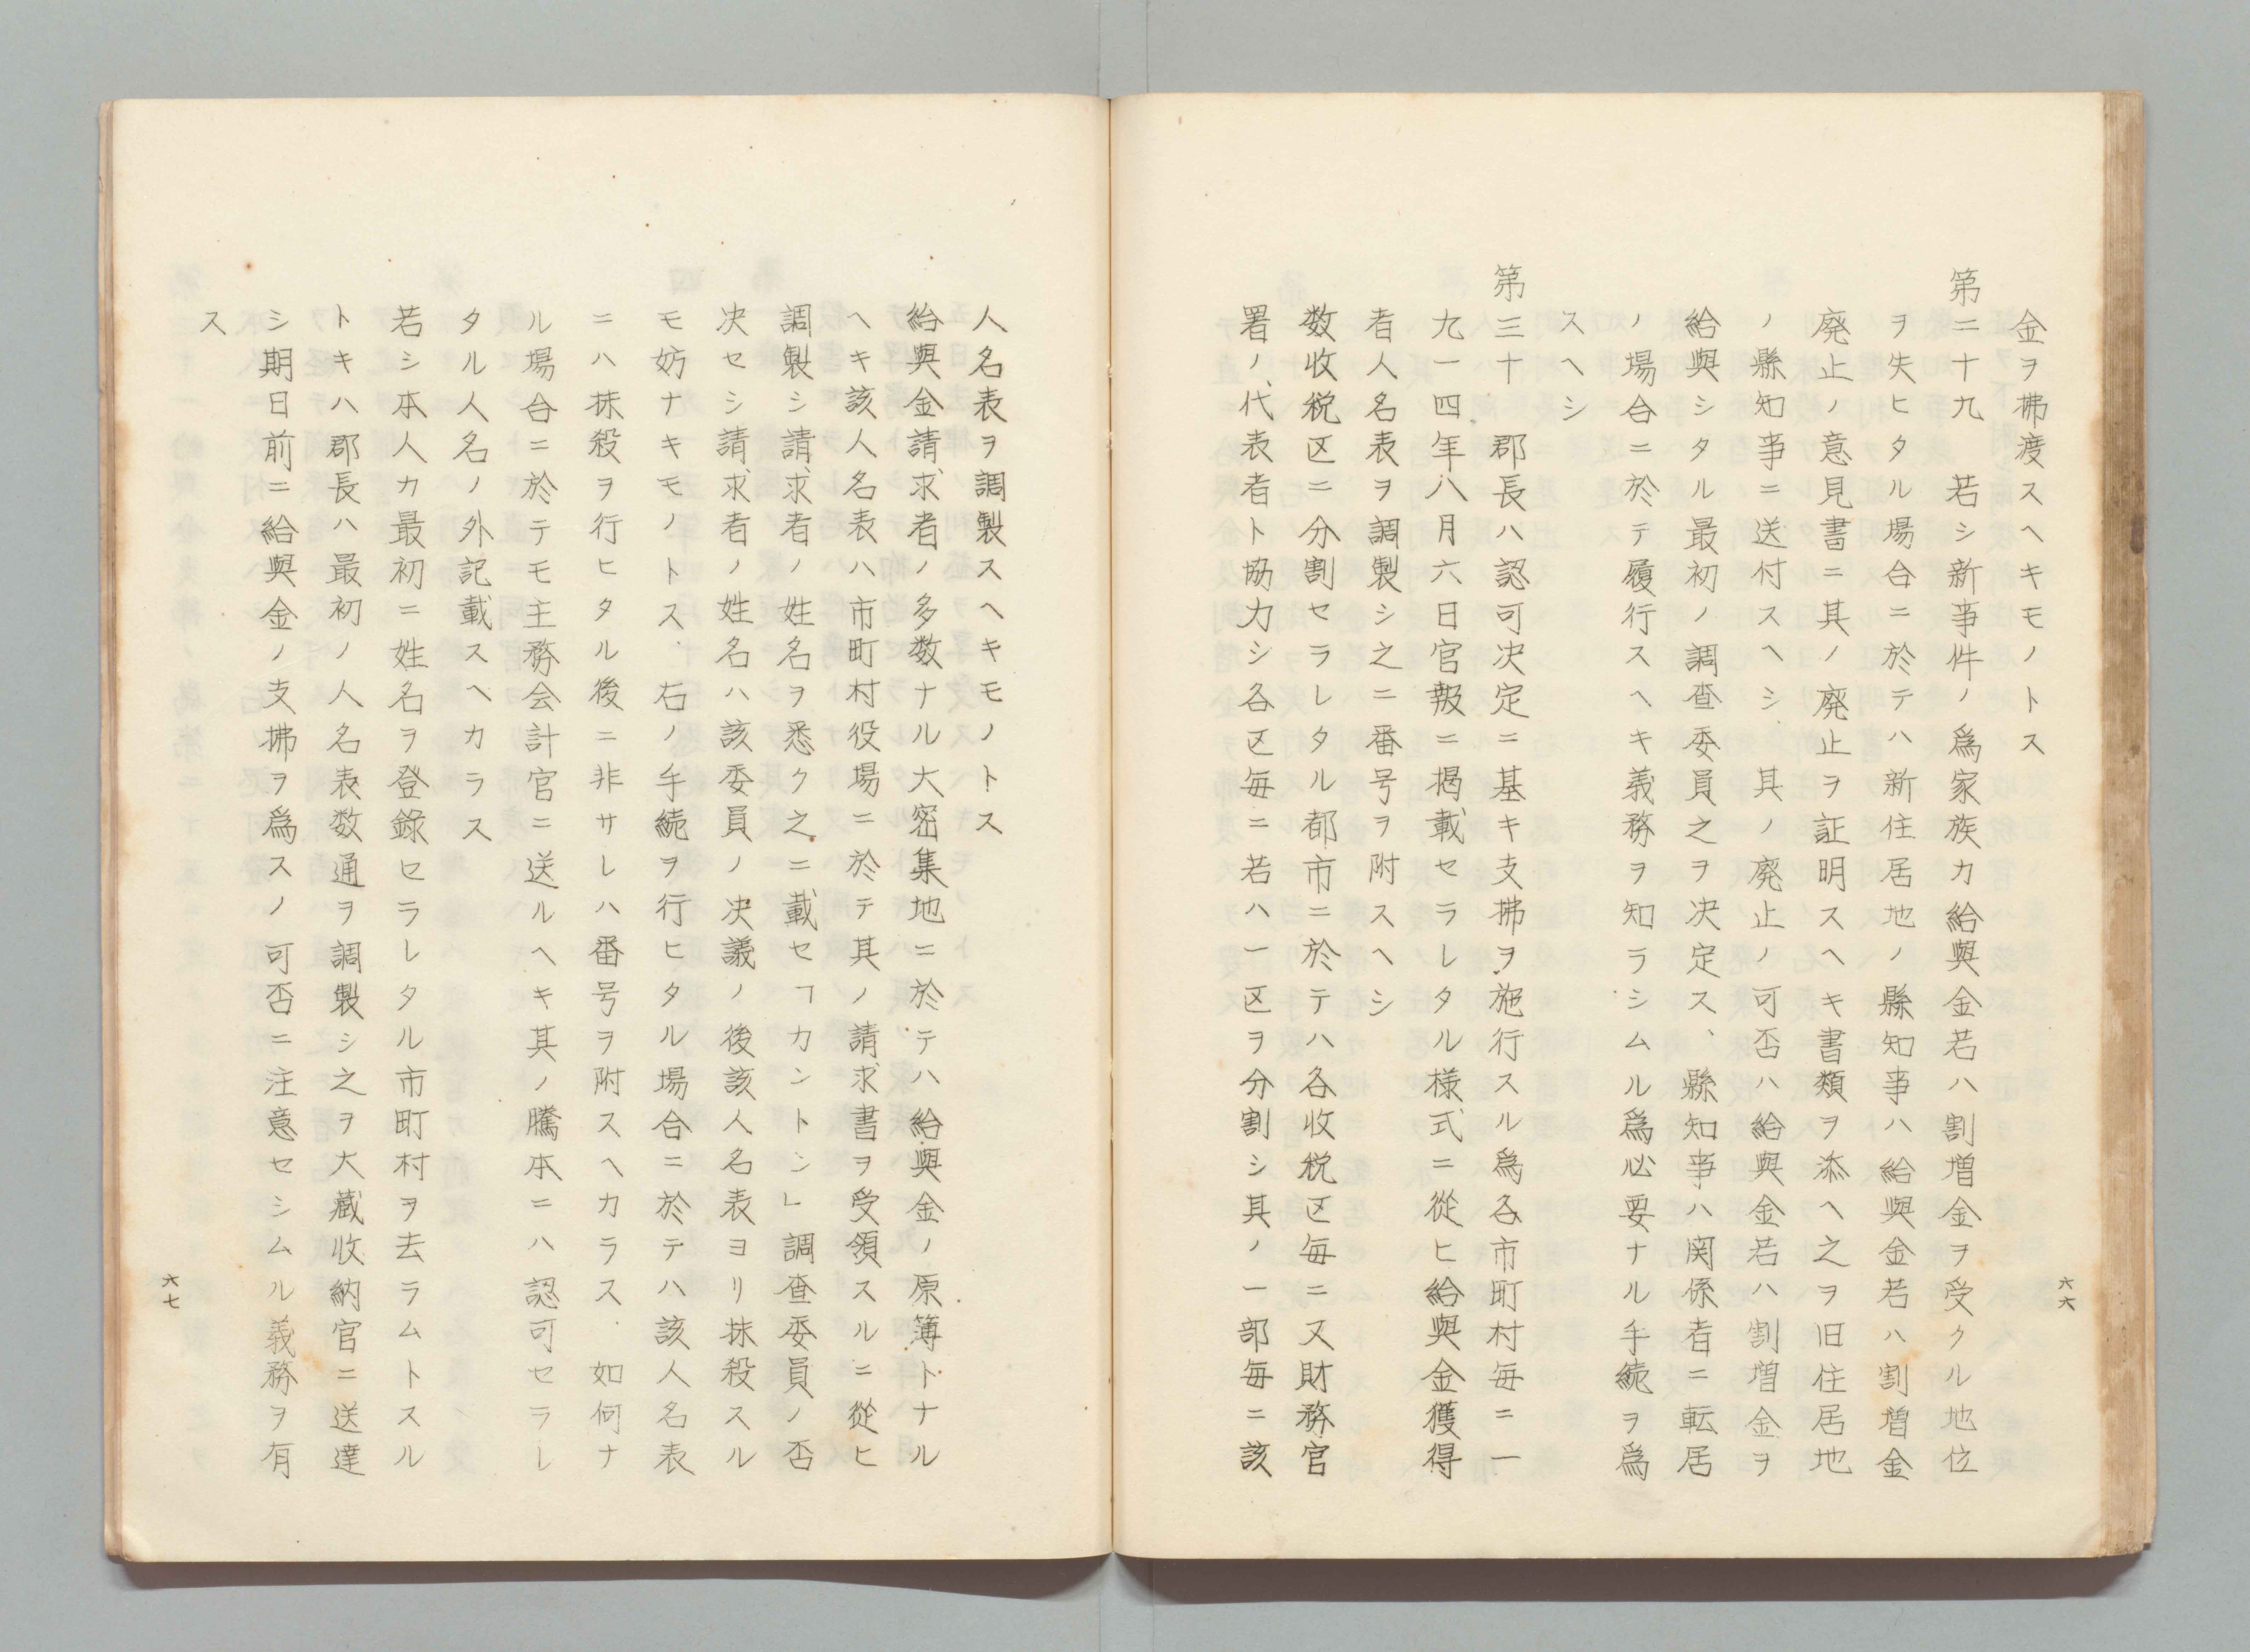 金ヲ拂渡スヘキモノトス
第二十九　若シ新事件ノ爲家族カ給與金若ハ割増金ヲ受クル地位
ヲ失ヒタル場合ニ於テハ新住居地ノ縣知事ハ給與金若ハ割増金
廃止ノ意見書ニ其ノ廃止ヲ証明スヘキ書類ヲ添ヘ之ヲ旧住居地
ノ縣知事ニ送付スヘシ　其ノ廃止ノ可否ハ給與金若ハ割増金ヲ
給與シタル最初ノ調查委員之ヲ決定ス、縣知事ハ関係者ニ転居
ノ場合ニ於テ履行スヘキ義務ヲ知ラシムル爲必要ナル手続ヲ爲
スヘシ
第三十　郡長ハ認可決定ニ基キ支拂ヲ施行スル爲各市町村毎ニ一
九一四年八月六日官報ニ掲載セラレタル様式ニ從ヒ給與金獲得
者人名表ヲ調製シ之ニ番号ヲ附スヘシ
数收税区ニ分割セラレタル都市ニ於テハ各收税区毎ニ又財務官
署ノ代表者ト協力シ各区毎ニ若ハ一区ヲ分割シ其ノ一部毎ニ該
六六
人名表ヲ調製スヘキモノトス
給與金請求者ノ多数ナル大密集地ニ於テハ給與金ノ原簿トナル
ヘキ該人名表ハ市町村役場ニ於テ其ノ請求書ヲ受領スルニ從ヒ
調製シ請求者ノ姓名ヲ悉ク之ニ載セ「カントン」調査委員ノ否
決セシ請求者ノ姓名ハ該委員ノ決議ノ後該人名表ヨリ抹殺スル
モ妨ナキモノトス　右ノ手続ヲ行ヒタル場合ニ於テハ該人名表
ニハ抹殺ヲ行ヒタル後ニ非サレハ番号ヲ附スヘカラス　如何ナ
ル場合ニ於テモ主務会計官ニ送ルヘキ其ノ騰本ニハ認可セラレ
タル人名ノ外記載スヘカラス
若シ本人カ最初ニ姓名ヲ登錄セラレタル市町村ヲ去ラムトスル
トキハ郡長ハ最初ノ人名表数通ヲ調製シ之ヲ大蔵收納官ニ送達
シ期日前ニ給與金ノ支拂ヲ爲スノ可否ニ注意セシムル義務ヲ有
ス
六七